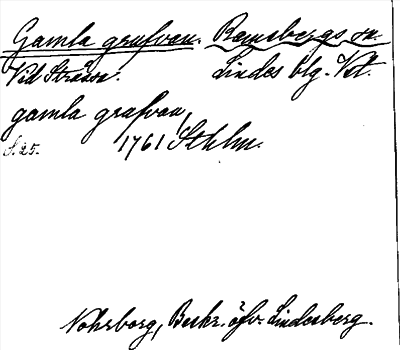 Gamla grufvan. Ramsbergs sn.
Vid Stråssa. Lindes blg. Vstl.
gamla grufvan,
S. 25. 1761 Sthlm.
Nohrborg, Beskr. öfv. Lindesberg.